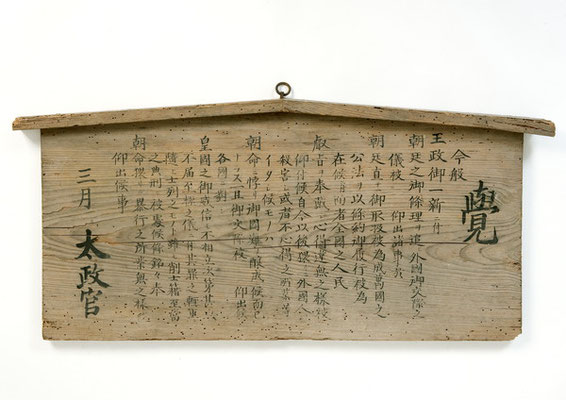 覺
今般
王政御一新ニ付
朝廷之御條理ヲ追ヒ外國御交際之
儀被 仰出諸事於
朝廷直ニ御取扱被為成萬國之
公法ヲ以條約御履行被為
在候ニ付而者全國之人民
叡旨ヲ奉戴シ心得違無之様被
仰付候自今以後猥ニ外國人ヲ
殺害シ或者不心得之所業等
イタシ候モノハ
朝命ニ悖リ御國難ヲ醸成シ候而已
ナラス一旦御交際被 仰出候
各國ニ對シ
皇國之御威信モ不相立次第甚以
不届至極之儀ニ付其罪之輕重ニ
隨ヒ士列之モノト雖モ削士籍至當
之典刑ニ被處候條銘々奉
朝命猥ニ暴行之所業無之様被
仰出候事
三月
太政官